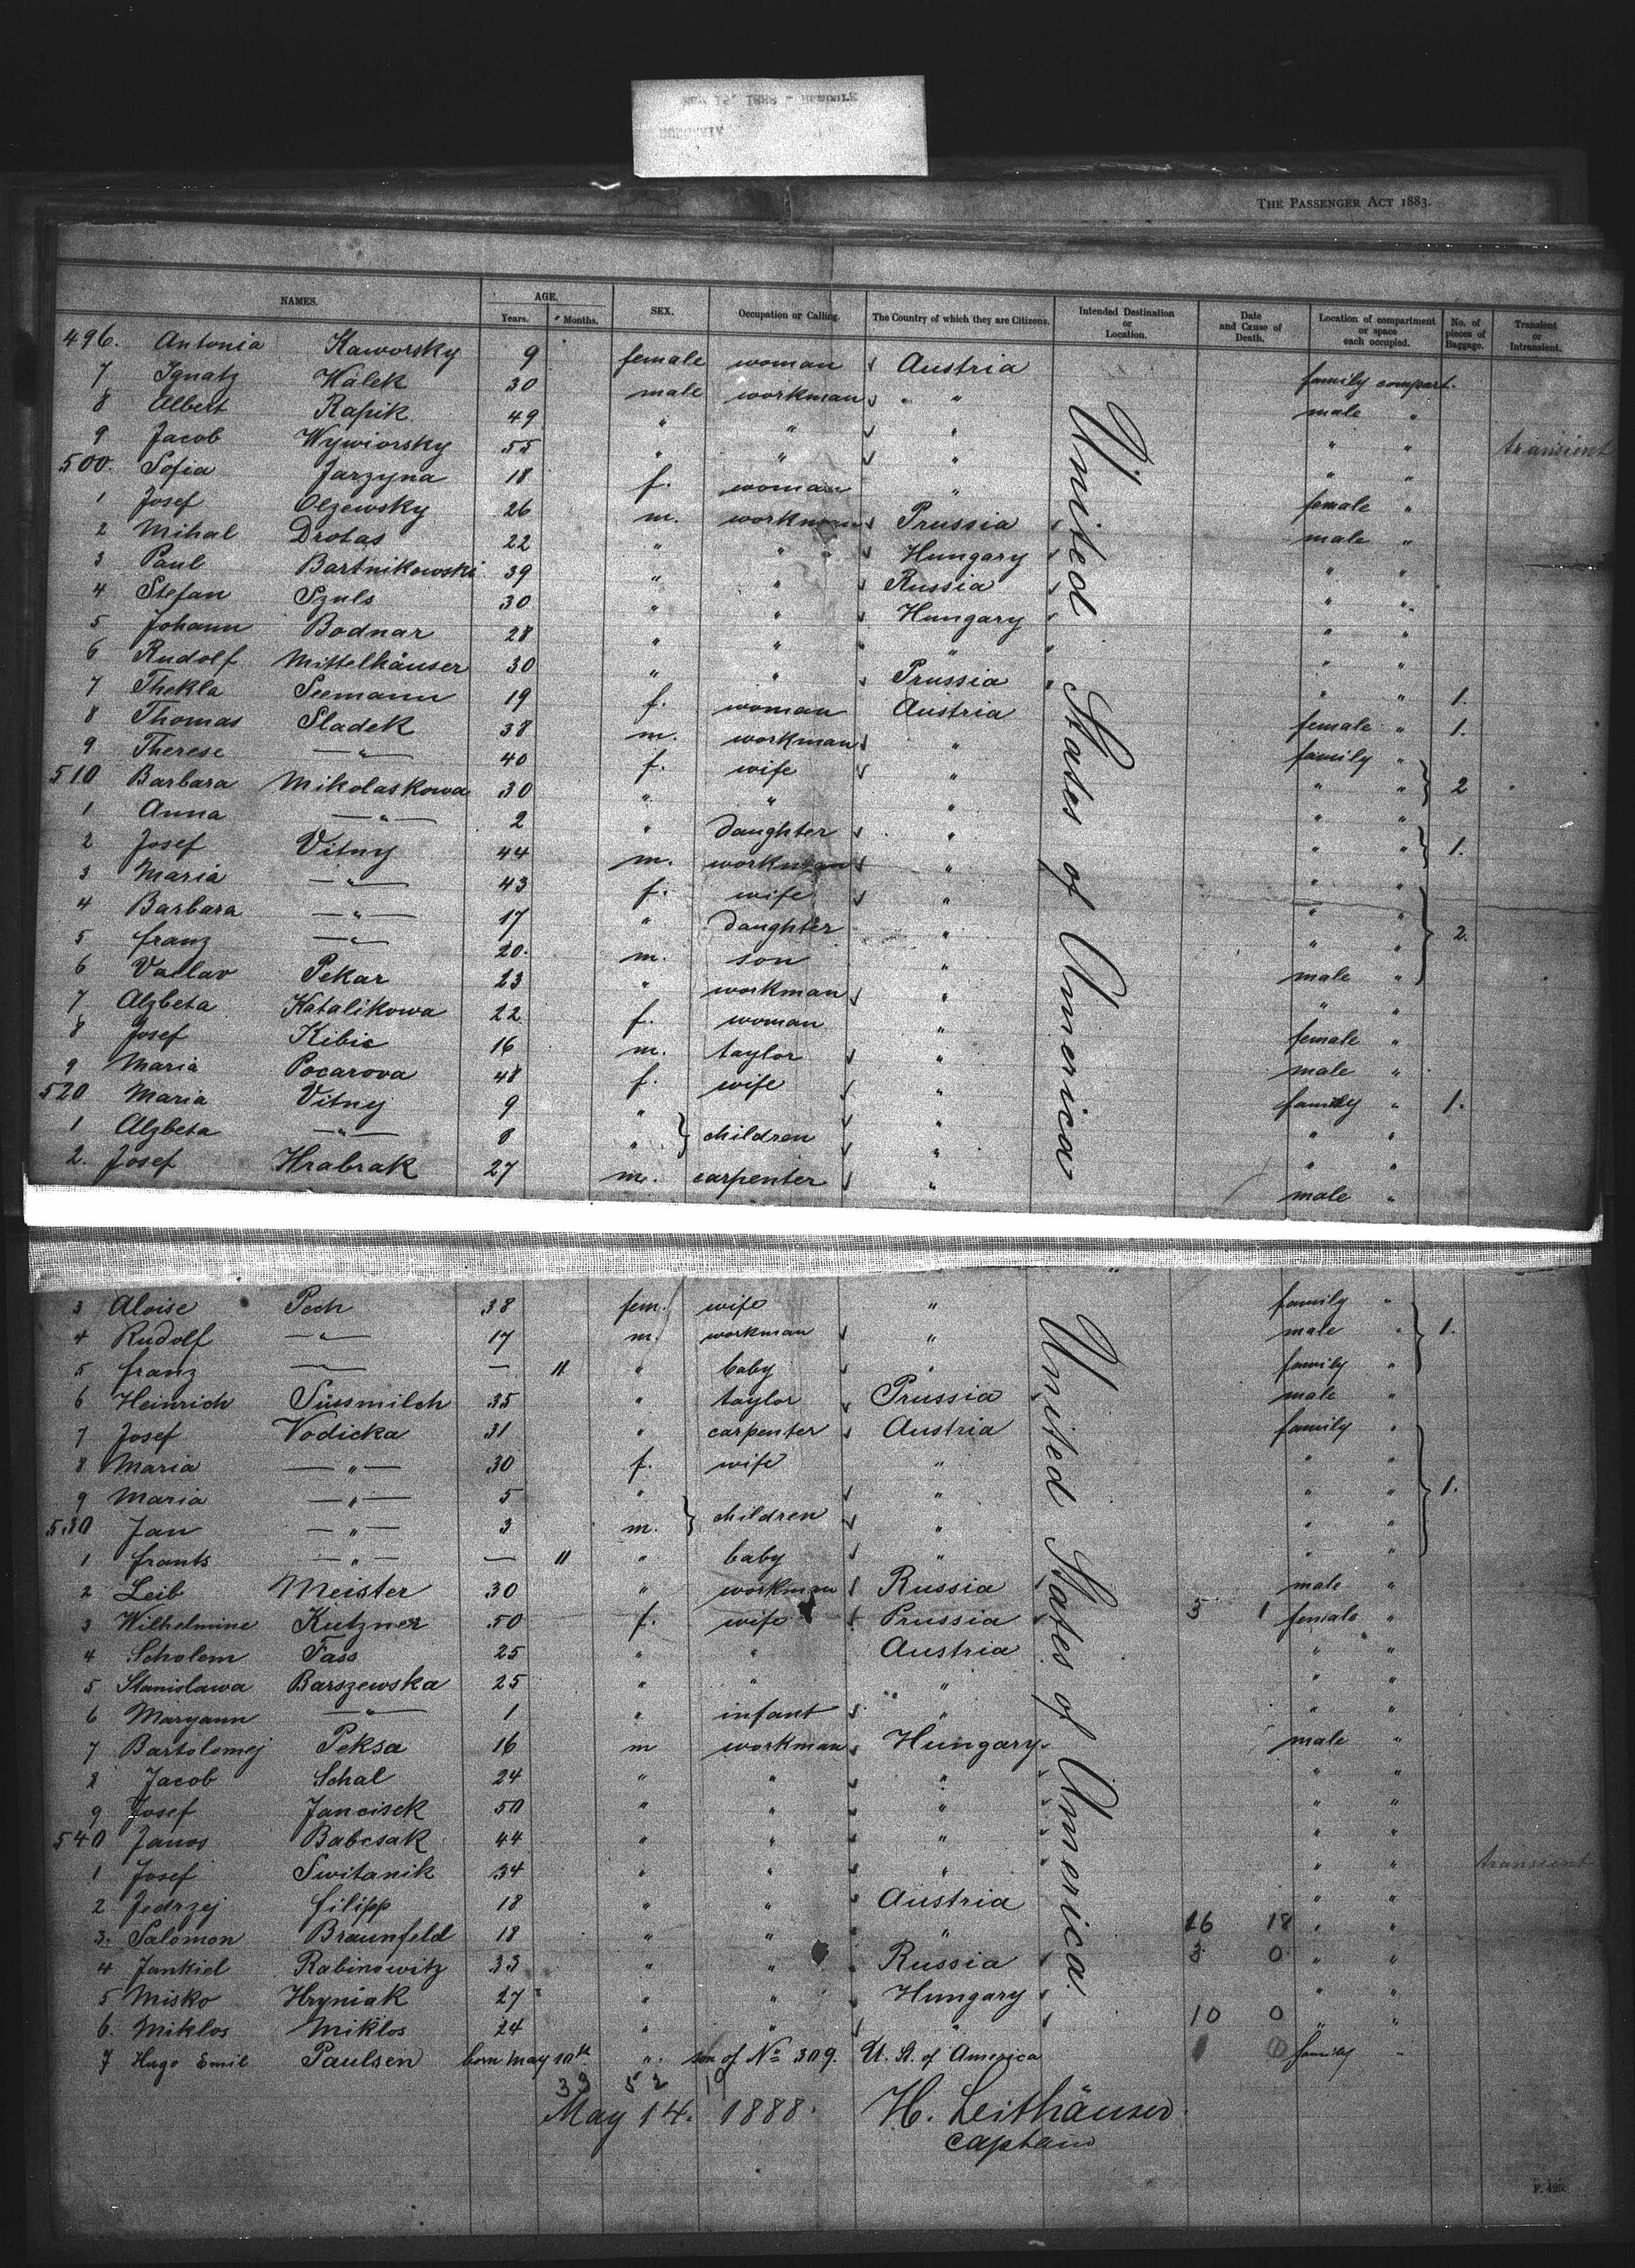 THE PASSENGER ACT 1883.
NAMES. AGE. SEX. Occupation or Calling. The Country of which they are Citizens. Intended Destination or Location. Date and Cause of Death. Location of compartment or space each occupied. No. of pieces of Baggage. Transient or Intransient.
Years. Months.
496. Antonia Kaworsky 9 female woman Austria family compart.
7 Ignatz Halek 30 male workman " " male "
8 Albert Rapik 49 " " " " "
9 Jacob Wywiorsky 55 " " " " " transient
500. Sofia Jarzyna 18 f. woman " female "
1 Josef Olzewsky 26 m. workman Prussia male "
2 Mihal Drotas 22 " " Hungary " "
3 Paul Bartnikowski 39 " " Russia " "
4 Stefan Szuls 30 " " Hungary " "
5 Johann Bodnar 28 " " " " "
6 Rudolf Mittelhäuser 30 " " Prussia " " 1.
7 Thekla Seemann 19 f. woman Austria female " 1.
8 Thomas Sladek 38 m. workman " family "
9 Therese —"— 40 f. wife " " " 2
510 Barbara Mikolaskowa 30 " " " " "
1 Anna —"— 2 " daughter " " " 1.
2 Josef Vitny 44 m. workman " " "
3 Maria —"— 43 f. wife " " "
4 Barbara —"— 17 " daughter " " " 2.
5 franz —"— 20. m. son " male "
6 Vaclav Pekar 23 " workman " " "
7 Alzbeta Katalikowa 22 f. woman " female "
8 Josef Kibic 16 m. taylor " male "
9 Maria Pocarova 48 f. wife " family " 1.
520 Maria Vitny 9 " children " " "
1 Alzbeta —"— 8 " " " "
2. Josef Hrabrak 27 m. carpenter " male "
United States of America
3 Aloise Pech 38 fem. wife " family "
4 Rudolf —"— 17 m. workman " male " 1.
5 franz —"— — 11 " baby " family "
6 Heinrich Süssmilch 35 " taylor Prussia male "
7 Josef Vodicka 31 " carpenter Austria family "
8 Maria —"— 30 f. wife " " "
9 Maria —"— 5 " children " " " 1.
530 Jan —"— 3 m. " " "
1 frants —"— — 11 " baby " " "
2 Leib Meister 30 " workman Russia male "
3 Wilhelmine Kutzner 50 f. wife Prussia 5 1 female "
4 Scholem Fass 25 " " Austria " "
5 Stanislawa Barszewska 25 " " " " "
6 Maryann —"— 1 " infant " " "
7 Bartolomej Peksa 16 m workman Hungary male "
8 Jacob Schal 24 " " " " "
9 Josef Jancisek 50 " " " " "
540 Janos Babcsak 44 " " " " "
1 Josef Switanik 34 " " " " " transient
2 Jedrzej filipp 18 " " Austria " "
3. Salomon Braunfeld 18 " " " 16 18 " "
4 Jankiel Rabinowitz 33 " " Russia 3 0 " "
5 Misko Hryniak 27 " " Hungary " "
6. Miklos Miklos 24 " " " 10 0 " "
7 Hugo Emil Paulsen born May 10th " son of No 309. U. St. of America 0 family "
United States of America.
33 52 19
May 14. 1888. H. Leithäuser
captain